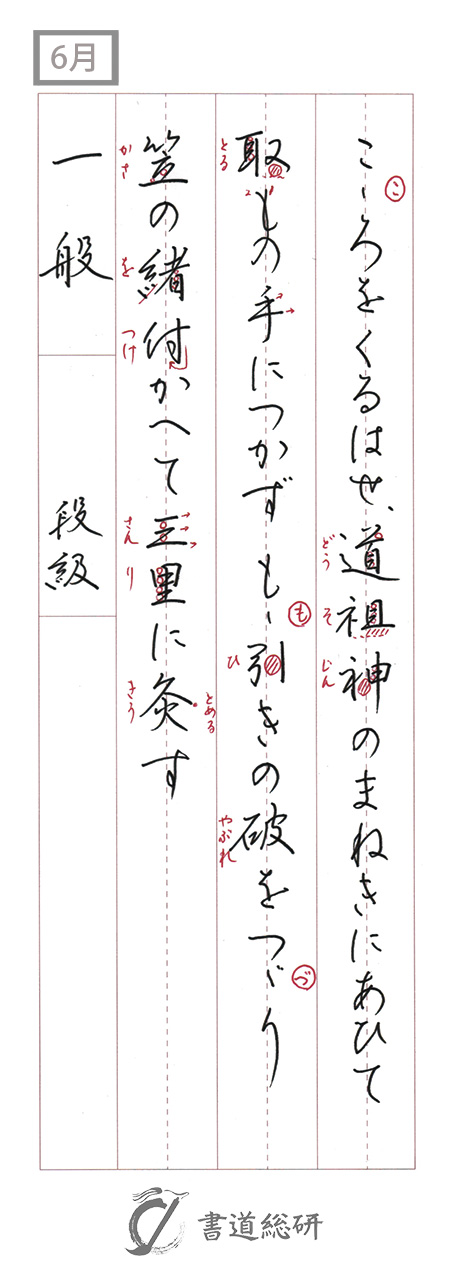 6月
こゝろをくるはせ、道祖神のまねきにあひて
こ
どう
そ
じん
取もの手につかずもゝ引きの破をつゞり
とる
も
ひ
やぶれ
づ
笠の緒付かへて三里に灸す
かさ
を
つけ
さん
り
きう
とめる
一般
段級
書道総研